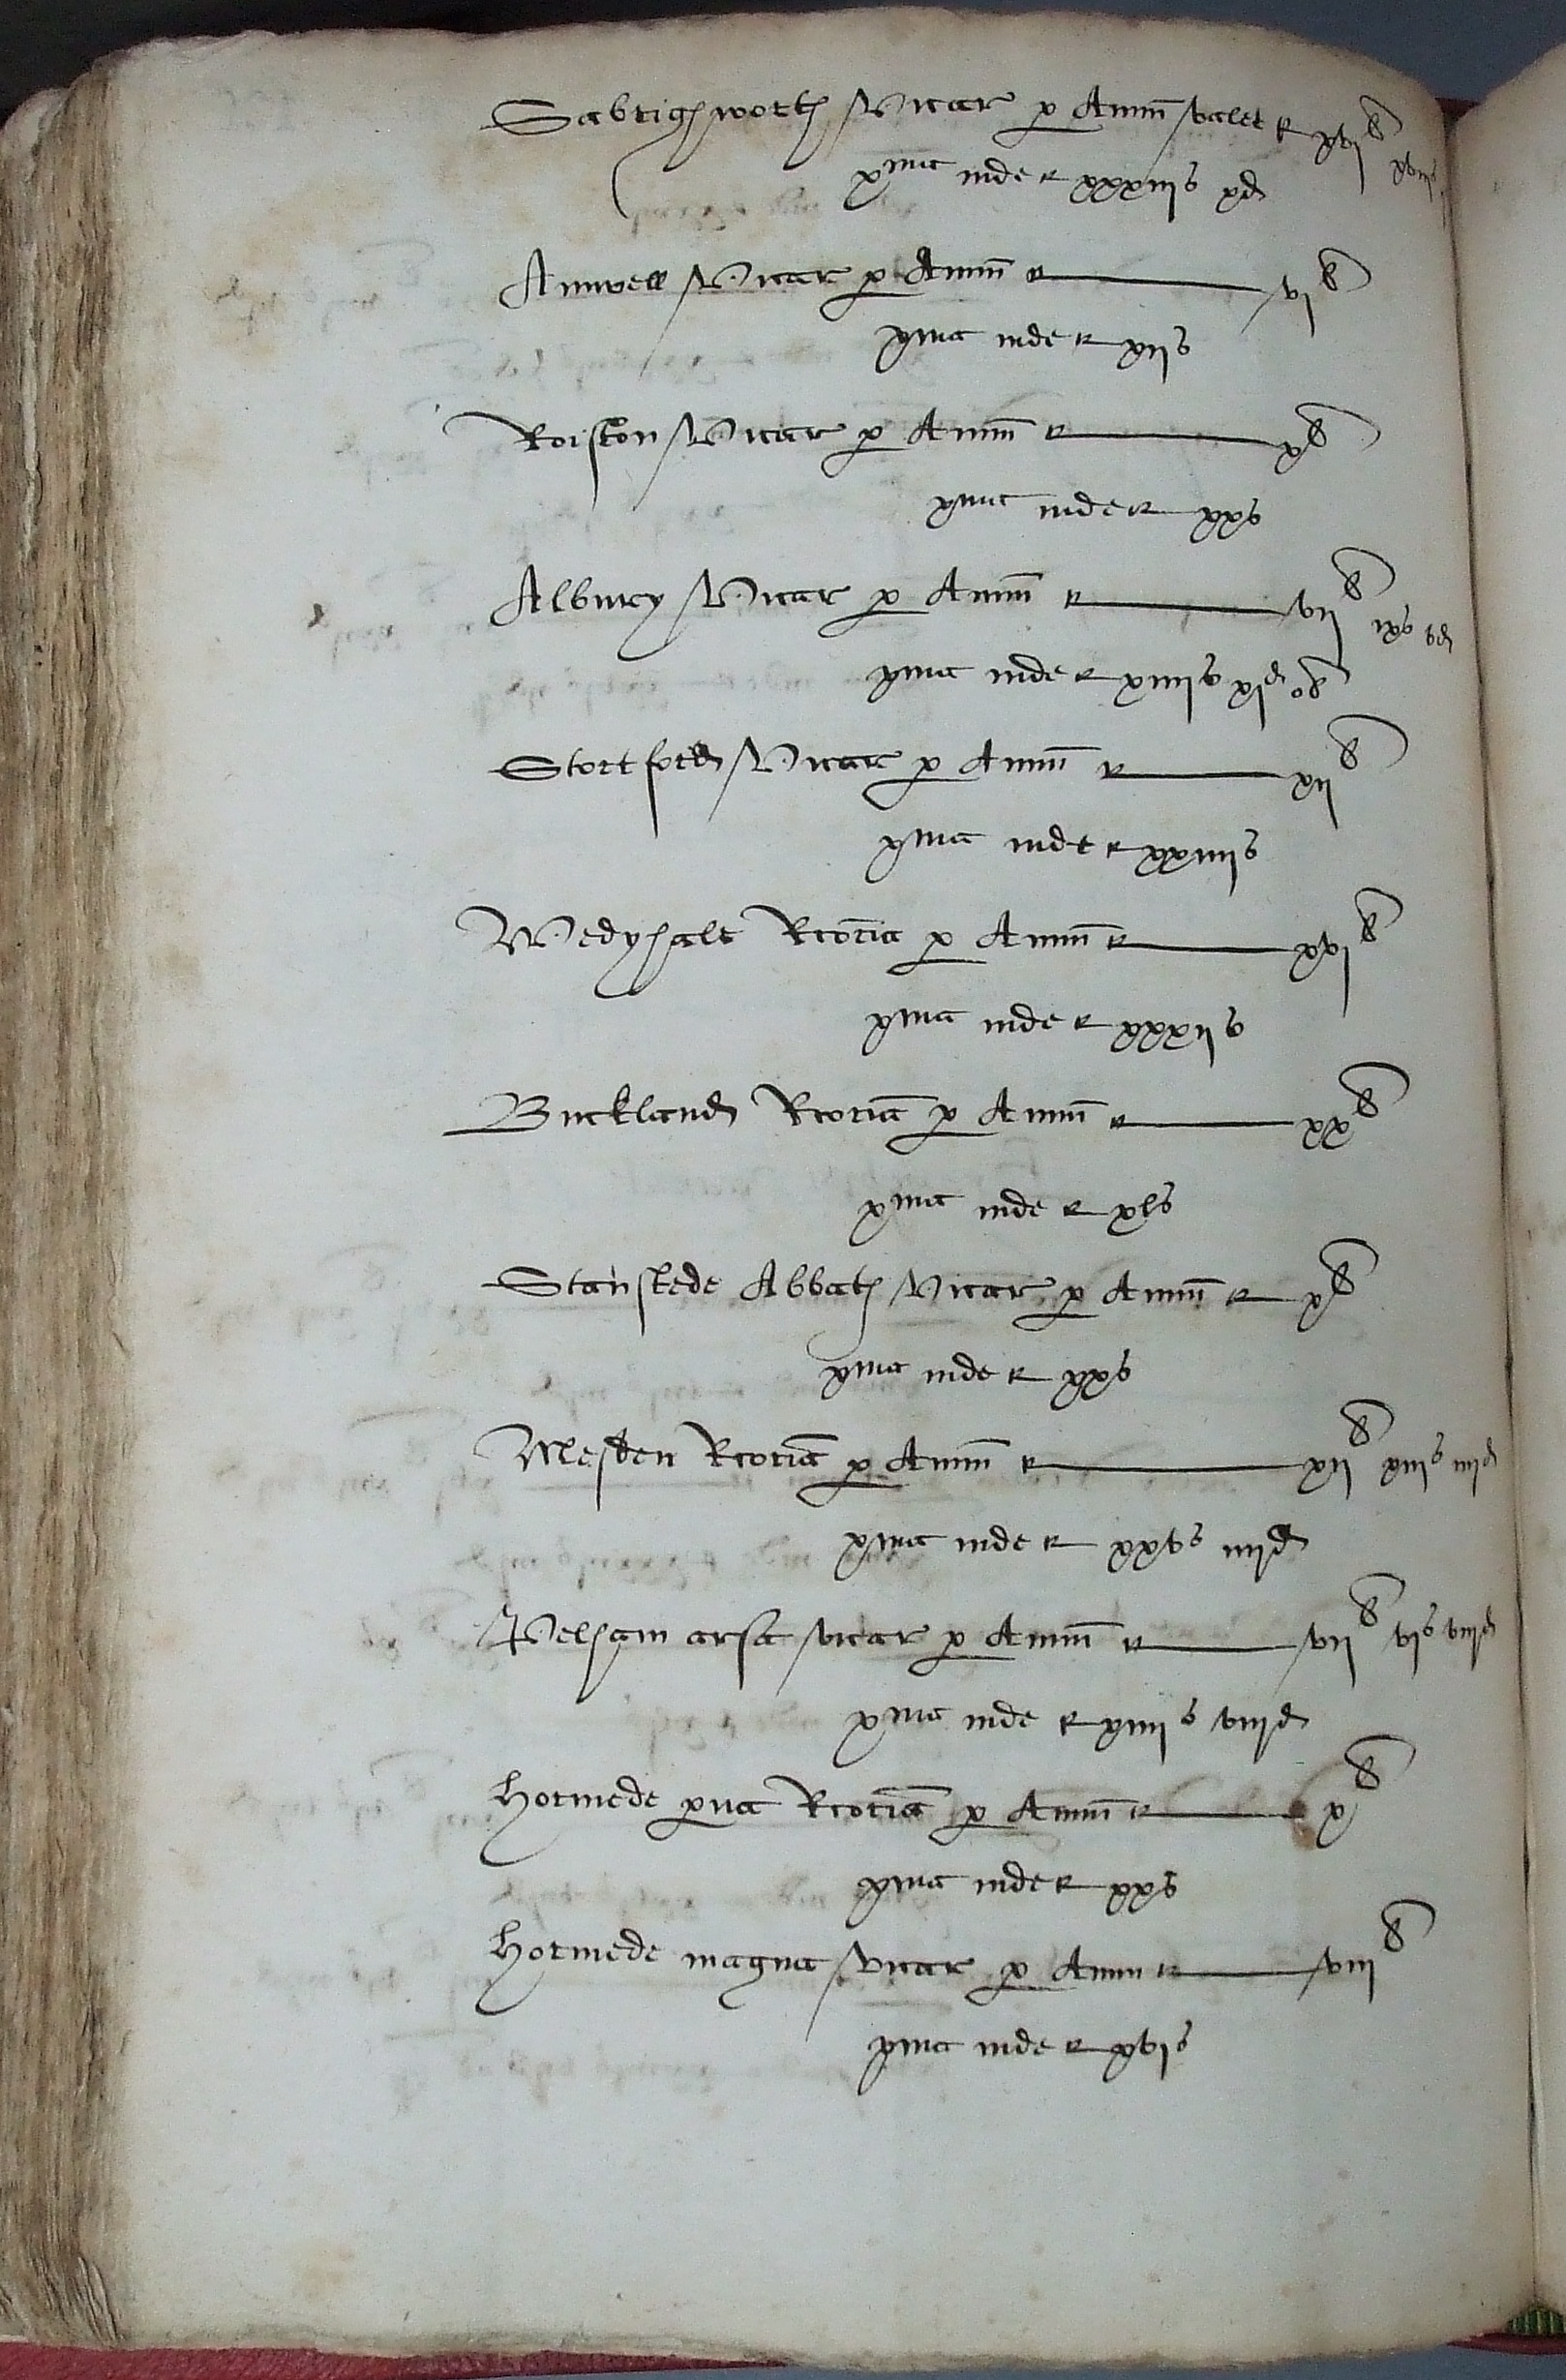 Sabrigsworth Vicar p Annū valet r xvj li xviijs
xma inde r xxxiijs xd
Amwell Vicar p Annū r vj li
xma inde r xijs
Roiston Vicar p Annū r x li
xma inde r xxs
Albury Vicar p Annū r vij li ixs vd
xma inde r xiiijs xjd ob
Stortford Vicar p Annū r xij li
xma inde r xxiiijs
Wedyhale Rcoria p Annū r xvj li
xma inde r xxxijs
Buckland Rcoria p Annū r xx li
xma inde r xls
Stanstede Abbath Vicar p Annū r x li
xma inde r xxs
Mesden Rcoria p Annū r xij li xiijs iiijd
xma inde r xxvs iiijd
Pelham arsa vicar p Annū r vij li vjs viijd
xma inde r xiiijs viijd
Hormede pua Rcoria p Annū r x li
xma inde r xxs
Hormede magna vicar p Annu r viij li
xma inde r xvjs